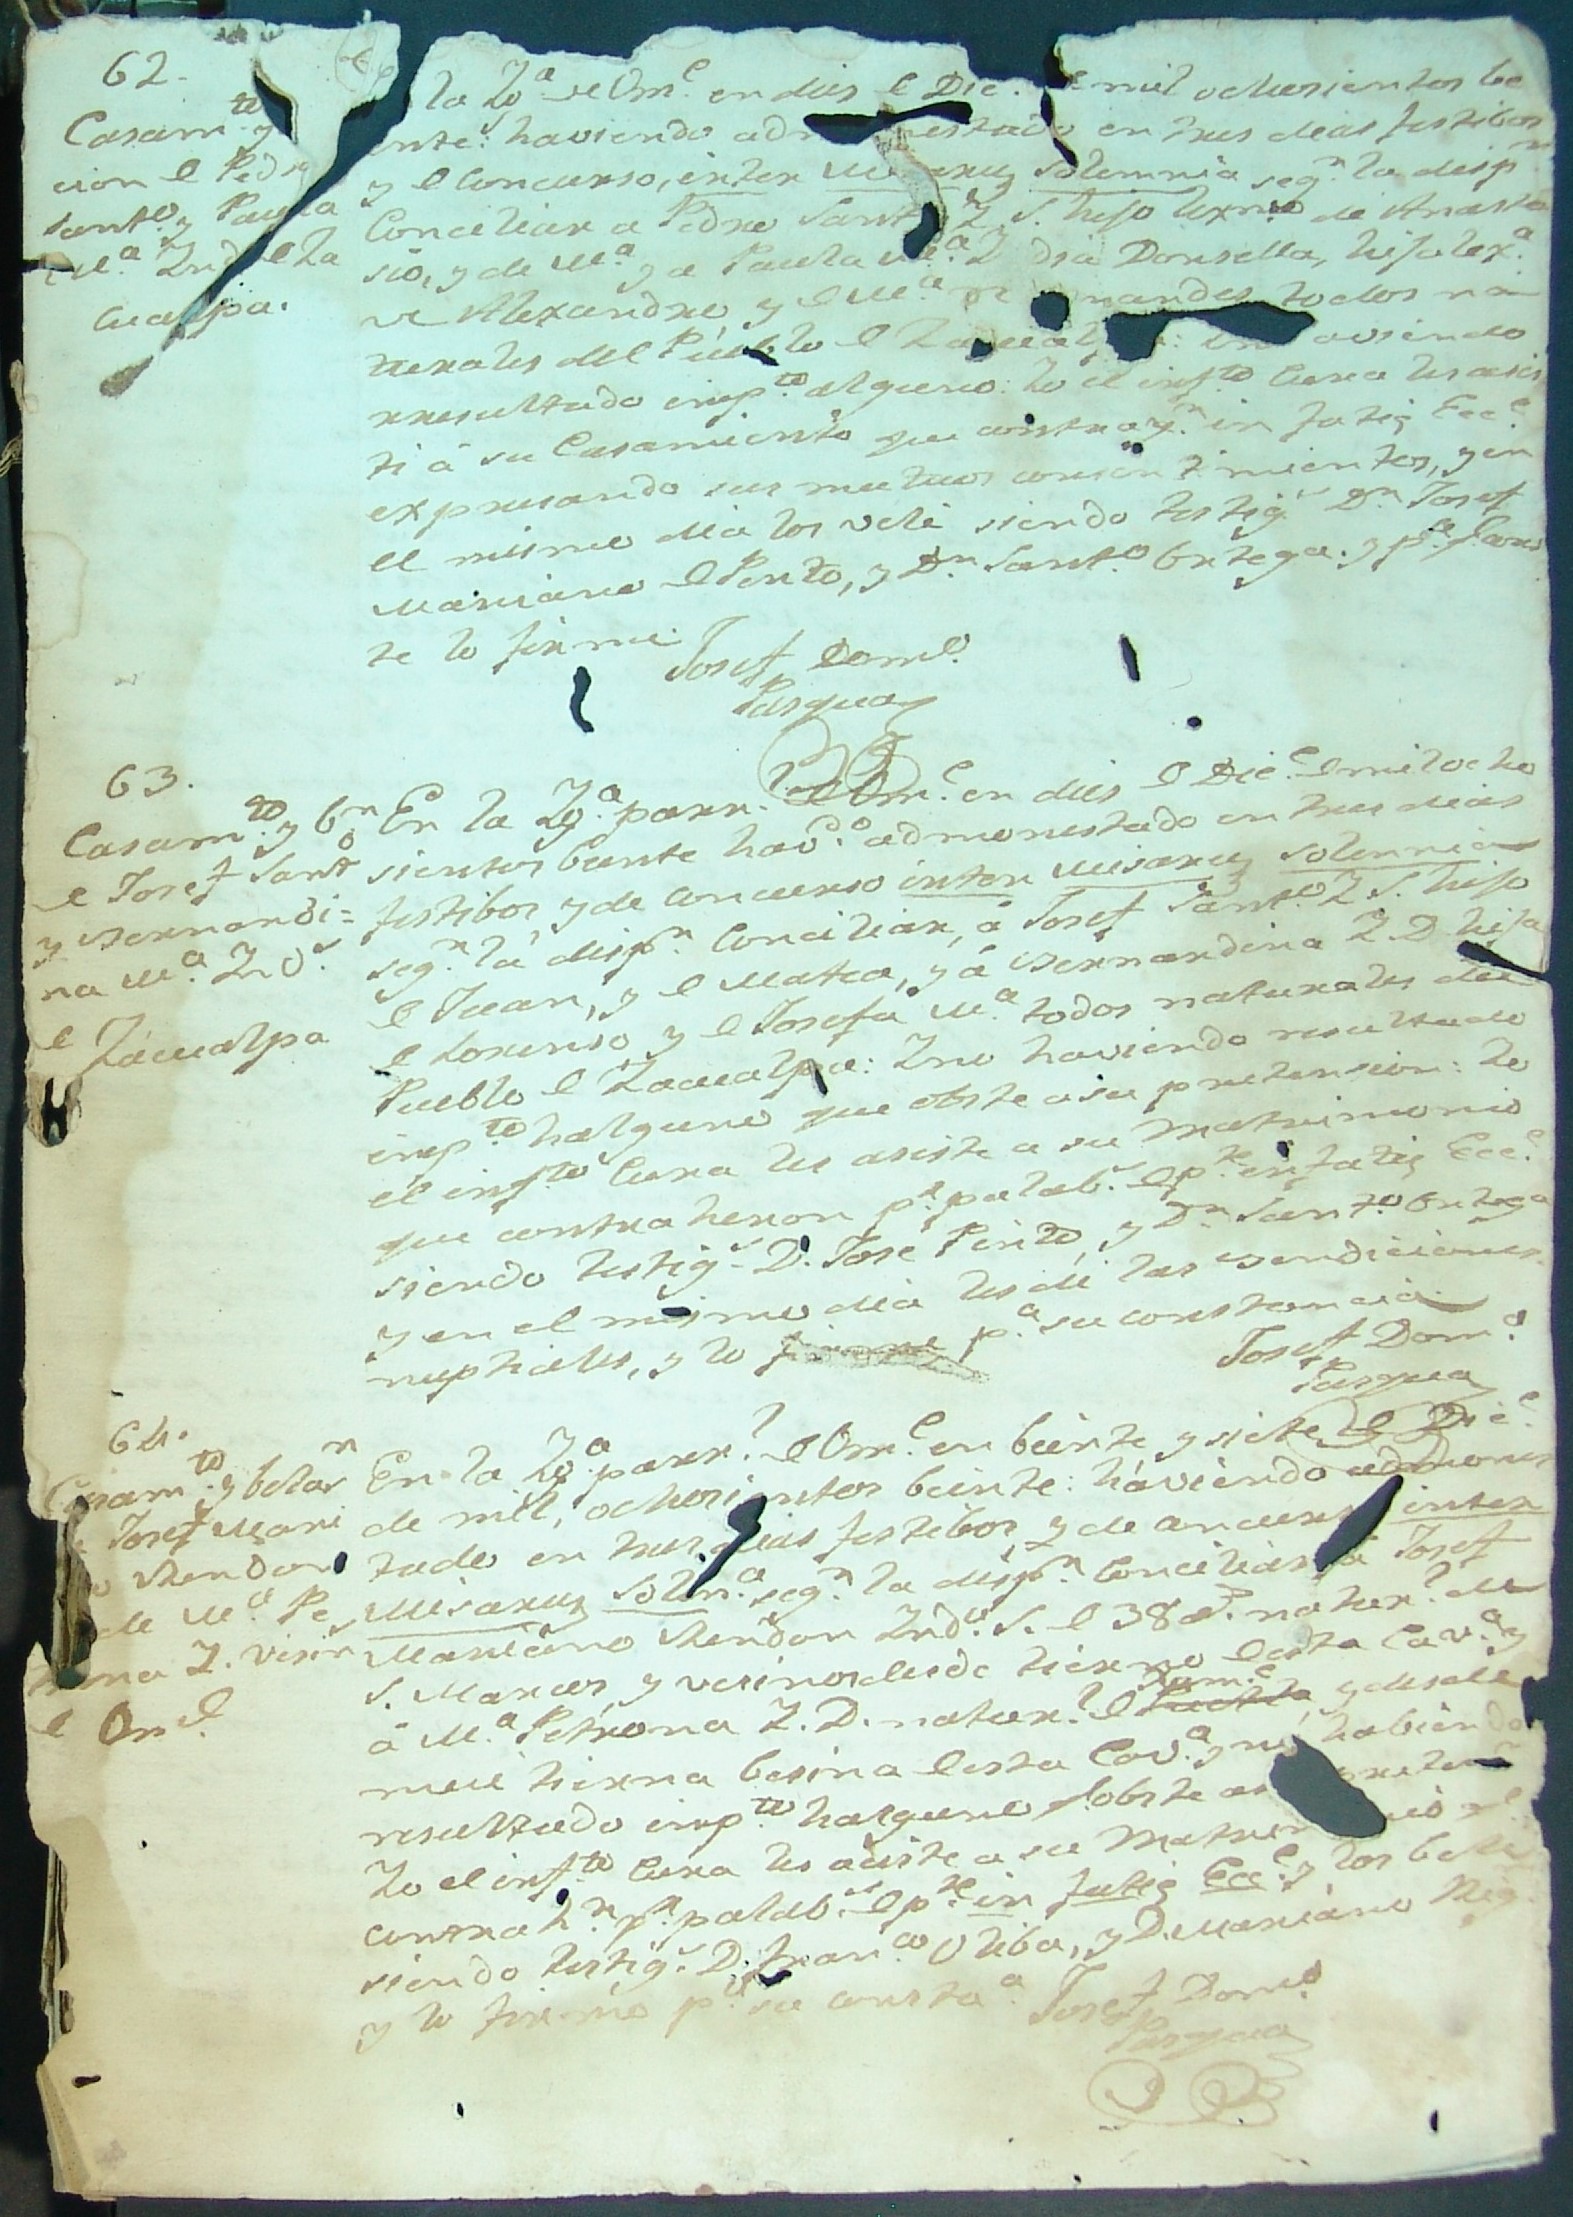 62.
Casam.to y
cion e Pedro
Sant.o y Paula
M.a Ind.s e Za
cualpa.
la Yg.a de Om.e en dies e Dic.e e mil ochosientos be
ente: haviendo admonestado en tres dias festibos
y e concurso, inter Misarum solemnia seg.n la disp.n
Conciliar a Pedro Sant.o Y. S. hijo lexmo de Anasta
sio, y de M.a y a Paula M.a Y dia Donsella, hija lex.a
de Alexandro y e M.a nandes todos na
turales del Pueblo e Zacualpa: aviendo
rresultado imp.to alguno: Yo el inf.to Cura les asis
ti á su Casamiento que contray.n in fatie Ecc.e
expresando sus mutuos consentimientos, y en
el mismo dia los velé siendo testig.s D.n Josef
Mariano e Pinto, y D.n Sant.o Ortega. y p.a q.e cons
te lo firmé.
Josef Dom.o
Pasqua
63.
Casam.to y b.n
e Josef Sant.o
y Bernardi=
na M.a Ind.s
e Zacualpa
En la Yg.a parr.l e Om.e en dies e Dic.e e mil ocho
sientos beente hav.do admonestado en tres dias
festibos y de concurso inter Misarum solemnia
seg.n la disp.n Conciliar, á Josef Sant.o Y. S. hijo
e Juan, y e Matea, y á Bernardina Y. D. hija
e Lorenso y e Josefa M.a todos naturales del
Pueblo e Zacualpa: Y no haviendo resultado
imp.to halguno que obste a su pretension: Yo
el inf.to Cura les asiste a su Matrimonio
que contraheron p.r palab.s e p.te in fatie Ecc.e
siendo testig.s D. José Pinto, y D.n Sant.o Ortega
y en el mismo dia les di las Bendiciones
nuptiales, y lo firme p.a su constancia
Josef Dom.o
Pasqua
64.
Casam.to y belas.n
e Josef Mari
o Rendon
de M.a Pe
trona Y. vesin
e Om.e
En la Yg.a parr.l e Om.e en beinte y siete e Dic.e
de mil, ochosientos beinte: haviendo admones
tado en tres dias festibos, y de concurso inter
Misarum Solem.a seg.n la disp.n Conciliar a Josef
Mariano Rendon Ind.o S. e 38 a.s natur.l de
S. Marcos, y vesino desde tierno e esta Cav.a y
á M.a Petrona Y. D. natur.l e y desde
mui tierna besina e esta Cav.a y no habiendo
resultado imp.to halguno q.e obste a preten.n
Yo el inf.to Cura les asiste a su Matrimonio q.e
contrah.n p.r palab.s e p.te in fatie Ecc.e y los belé
siendo testig.s D. Fran.co Oliba, y D. Mariano
y lo firmé p.a su consta.a
Josef Dom.o
Pasqua